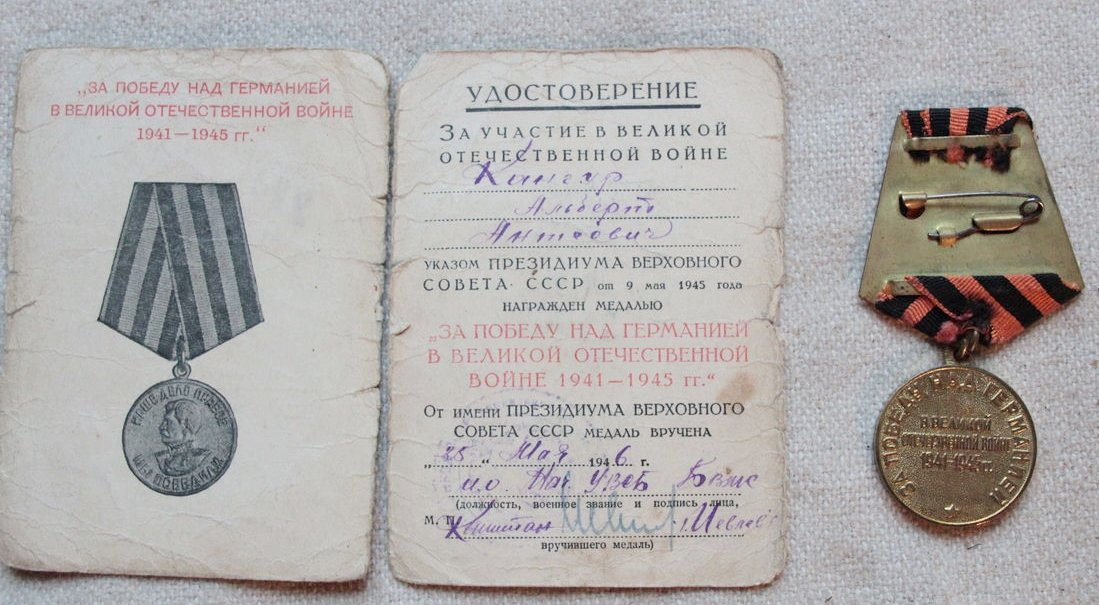 „ЗА ПОБЕДУ НАД ГЕРМАНИЕЙ
В ВЕЛИКОЙ ОТЕЧЕСТВЕННОЙ ВОЙНЕ
1941—1945 гг.“
НАШЕ ДЕЛО ПРАВОЕ
МЫ ПОБЕДИЛИ
УДОСТОВЕРЕНИЕ
ЗА УЧАСТИЕ В ВЕЛИКОЙ
ОТЕЧЕСТВЕННОЙ ВОЙНЕ
Альберт
УКАЗОМ ПРЕЗИДИУМА ВЕРХОВНОГО
СОВЕТА СССР от 9 мая 1945 года
НАГРАЖДЕН МЕДАЛЬЮ
„ЗА ПОБЕДУ НАД ГЕРМАНИЕЙ
В ВЕЛИКОЙ ОТЕЧЕСТВЕННОЙ
ВОЙНЕ 1941—1945 гг.“
От имени ПРЕЗИДИУМА ВЕРХОВНОГО
СОВЕТА СССР МЕДАЛЬ ВРУЧЕНА
„25“ Мая 1946 г.
и.о. Нач.
(должность, военное звание и подпись лица,
М. П.
вручившего медаль)
ЗА ПОБЕДУ НАД ГЕРМАНИЕЙ
В ВЕЛИКОЙ
ОТЕЧЕСТВЕННОЙ ВОЙНЕ
1941-1945 гг.